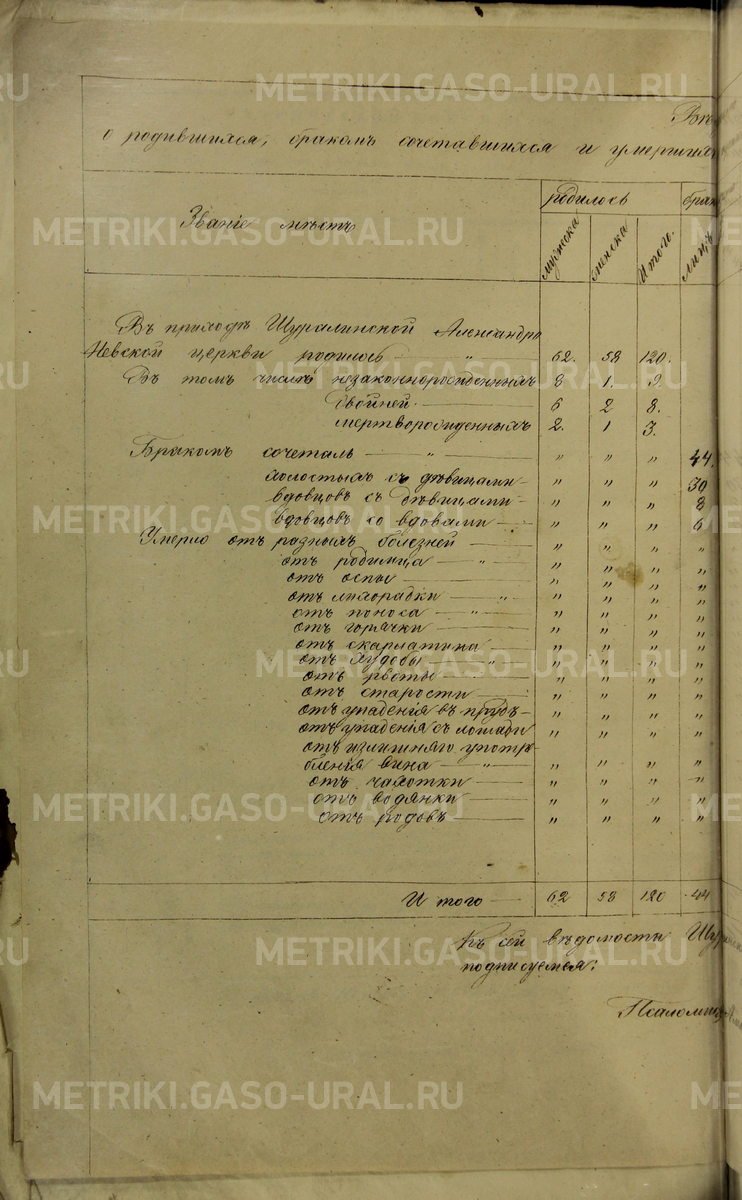 Вѣ
о родившихся, бракомъ сочетавшихся и умершихъ
Званіе мѣстъ
родилось
брак
мужеска
женска
Итого.
лицъ
Въ приходѣ Шуралинской Александро
Невской церкви родилось — „ — 62. 58 120.
Въ томъ числѣ незаконнорожденныхъ 8 1. 9.
двойней — 6 2 8.
мертворожденныхъ 2. 1 3.
Бракомъ сочеталъ — „ — „ „ „ 44.
холостыхъ съ дѣвицами — „ „ „ 30
вдовцовъ съ дѣвицами — „ „ „ 8
вдовцовъ со вдовами — „ „ „ 6
Умерло отъ разныхъ болѣзней — „ „ „ „
отъ родимца — „ — „ „ „ „
отъ оспы — „ „ „ „
отъ лихорадки — „ — „ „ „ „
отъ поноса — „ — „ „ „ „
отъ горячки — „ „ „ „
отъ скарлатина — „ „ „ „
отъ худобы — „ — „ „ „ „
отъ рвоты — „ „ „ „
отъ старости — „ „ „ „
отъ упаденія въ прудъ — „ „ „ „
отъ упаденія съ лошади „ „ „ „
отъ излишняго употре
бленія вина — „ — „ „ „ „
отъ чахотки — „ „ „ „
отъ водянки — „ „ „ „
отъ родовъ — „ „ „ „
Итого — 62 58 120 44
Къ сей вѣдомости Шур
подписуемся:
Псаломщ
METRIKI.GASO-URAL.RU